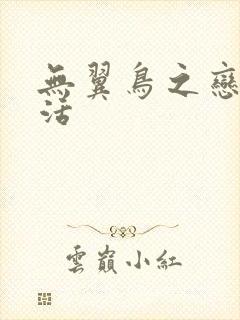 無翼鳥之戀
活
雲巔小紅